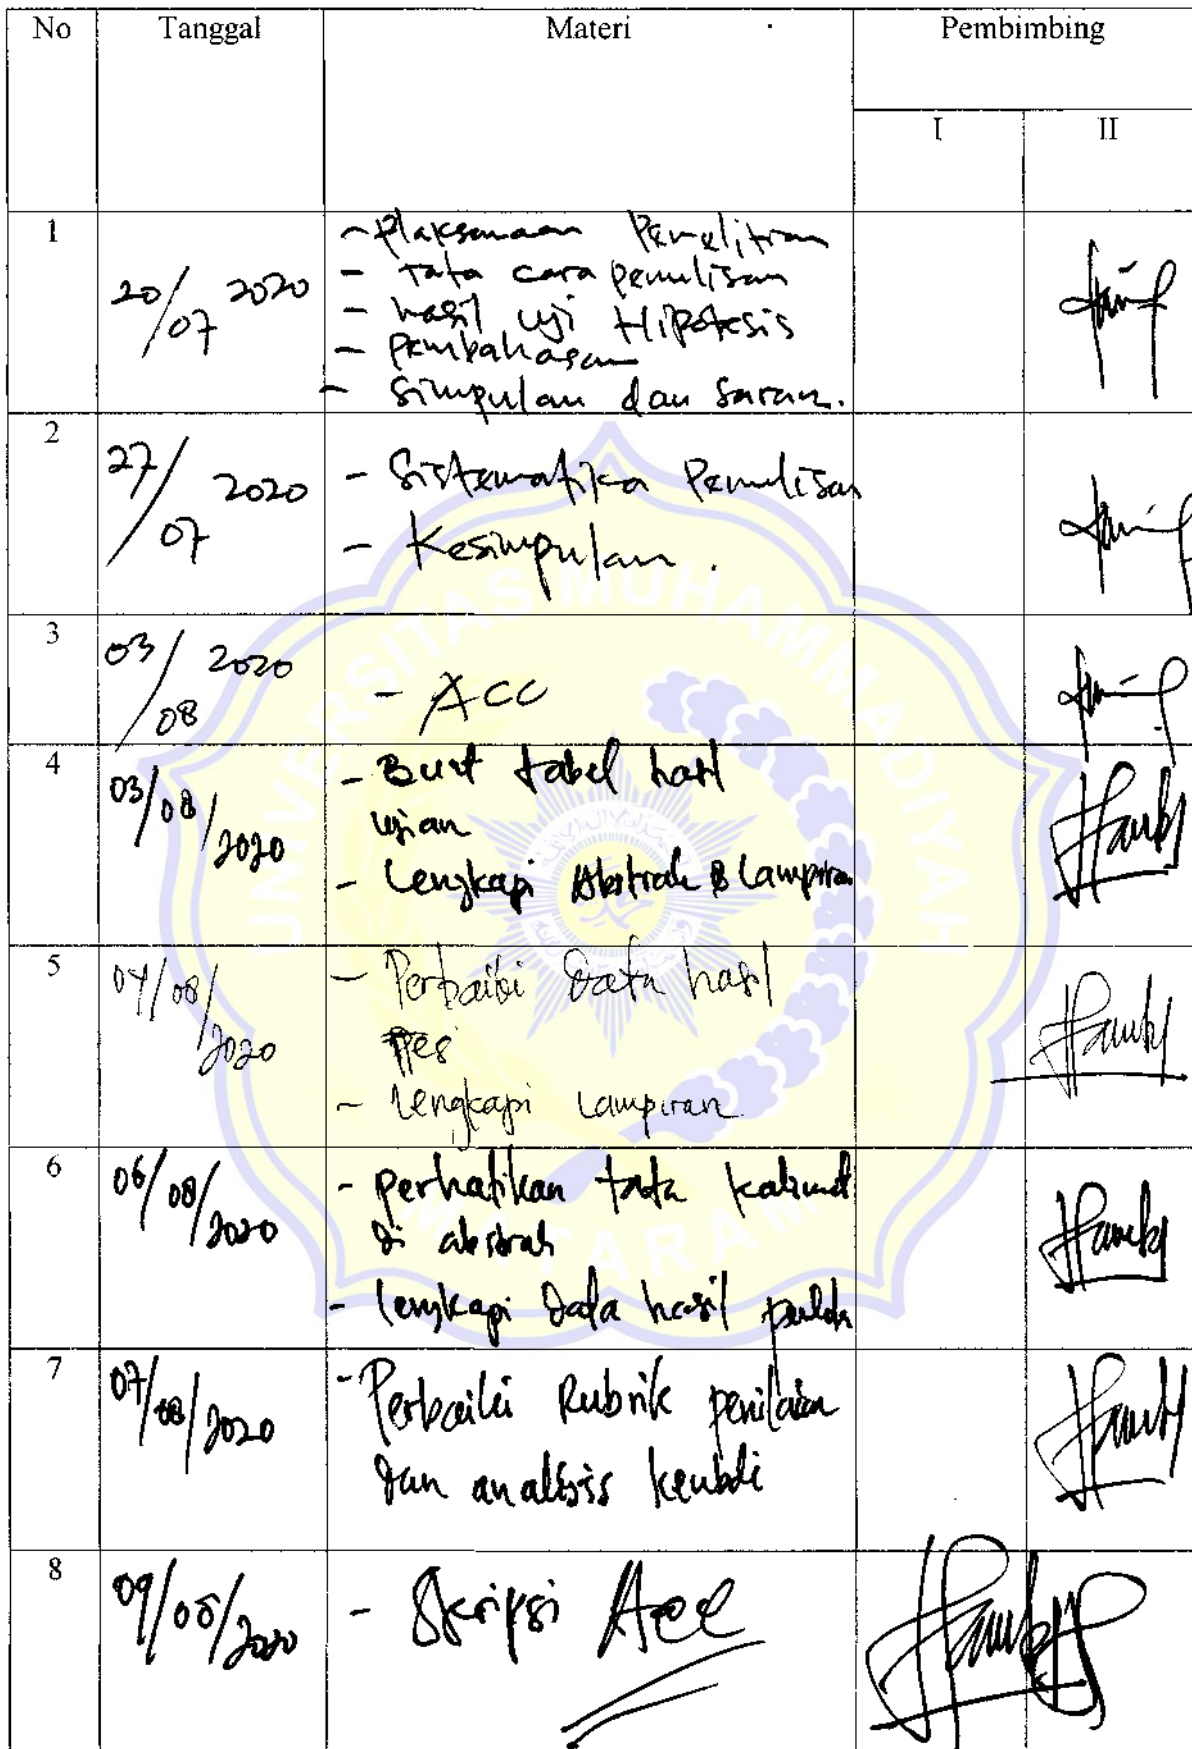 No Tanggal Materi Pembimbing
I II
1 20/07 2020
- Plaksanaan Penelitian
- Tata cara penulisan
- hasil uji Hipotesis
- Pembahasan
- Simpulan dan Saran.
2 27/07 2020
- Sistematika Penulisan
- Kesimpulan.
3 03/08 2020
- ACC
4 03/08/2020
- Buat tabel hasil
ujian
- Lengkapi Abstrak & Lampiran
5 04/08/2020
- Perbaiki Data hasil
Tes
- Lengkapi Lampiran
6 06/08/2020
- Perhatikan tata kalimat
di abstrak
- lengkapi Data hasil
7 07/08/2020
- Perbaiki Rubrik penilaian
dan analisis kembali
8 09/08/2020
- Skripsi Acc
UNIVERSITAS MUHAMMADIYAH
MATARAM